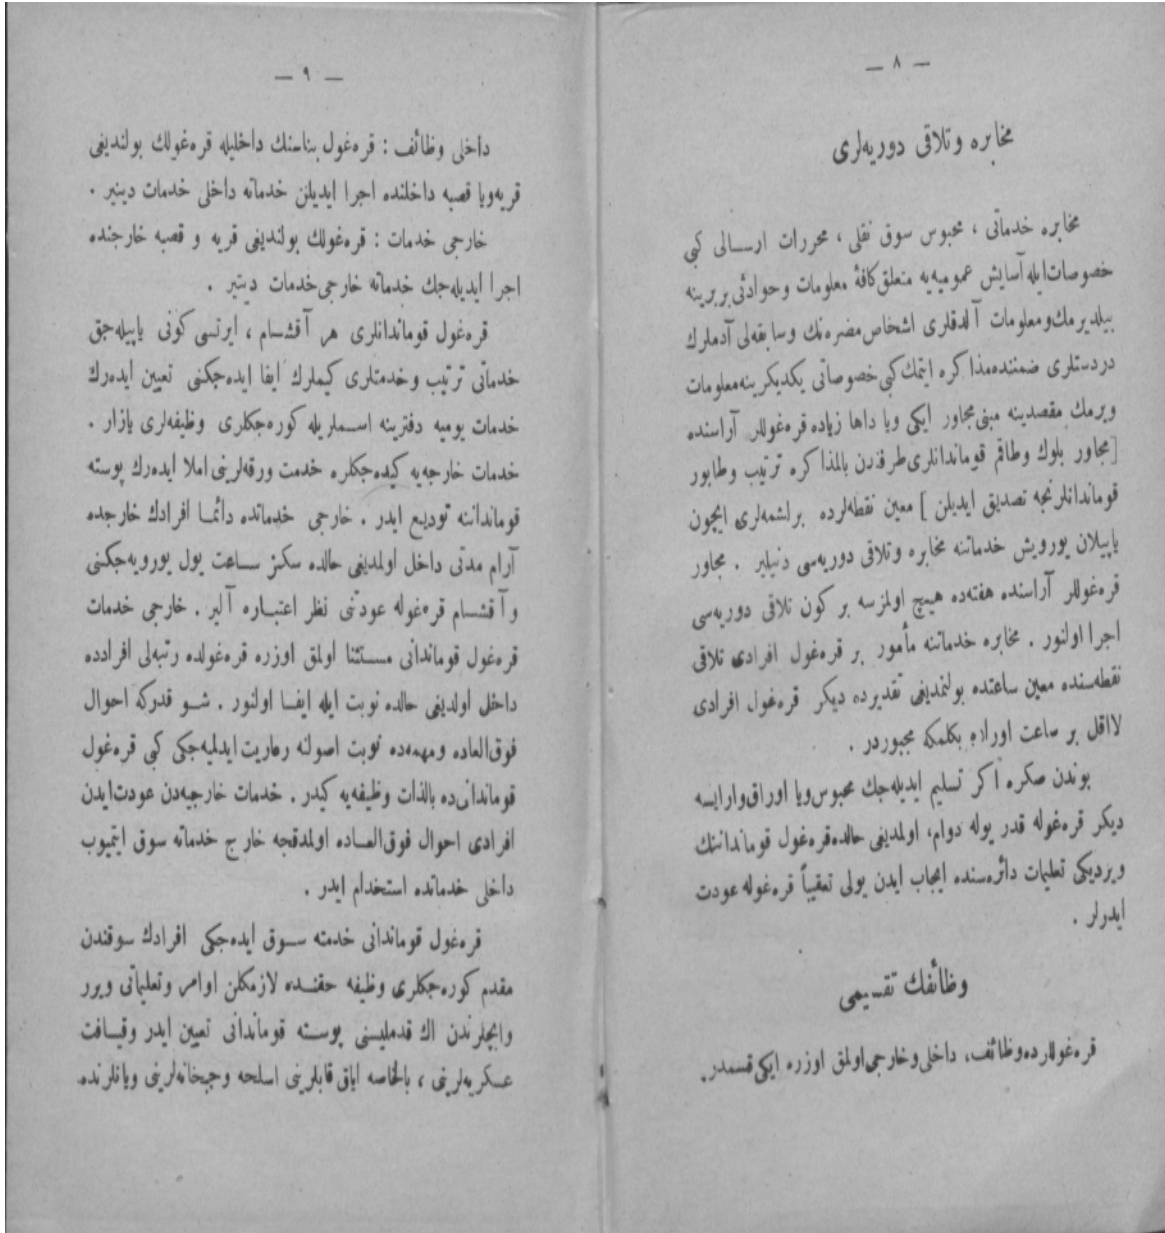 — ٨ —
مخابره وتلاقی دوریه‌لری
مخابره خدماتی ، محبوس سوق نقلی ، محررات ارسـالی کبی
خصوصات‌ایله آسایش عمومیه‌یه متعلق کافهٔ معلومات وحوادثی بربرینه
بیلدیرمك‌ومعلومات آلدقلری اشخاص مضره‌نك وسابقه‌لی آدملرك
دردستلری ضمننده‌مذاکره ایتمك کبی خصوصاتی یکدیکرینه‌معلومات
ویرمك مقصدینه مبنی‌مجاور ایکی ویا داها زیاده قره‌غوللر آراسنده
[مجاور بلوك وطاقم قوماندانلری‌طرفدن بالمذاکره ترتیب وطابور
قوماندانلرنجه تصدیق ایدیلن ] معین نقطه‌لرده برلشمه‌لری ایچون
یاپیلان یورویش خدماتنه مخابره وتلاقی دوریه‌سی دنیلیر . مجاور
قره‌غوللر آراسنده هفته‌ده هیچ اولمزسه بر کون تلاقی دوریه‌سی
اجرا اولنور . مخابره خدماتنه مأمور بر قره‌غول افرادی تلاقی
نقطه‌سنده معین ساعتده بولنمدیغی تقدیرده دیکر قره‌غول افرادی
لااقل بر ساعت اوراده بکلمکه مجبوردر .
بوندن صکره اکر تسلیم ایدیله‌جك محبوس‌ویا اوراق‌وارایسه
دیکر قره‌غوله قدر یوله دوام، اولمدیغی حالده‌قره‌غول قوماندانتك
ویردیکی تعلیمات دائره‌سنده ایجاب ایدن یولی تعقیباً قره‌غوله عودت
ایدرلر .
وظائفك تقسیمی
قره‌غوللرده‌وظائف، داخلی‌وخارجی‌اولمق اوزره ایکی‌قسمدر.
— ٩ —
داخلی وظائف : قره‌غول بناسنك داخلیله قره‌غولك بولندیغی
قریه‌ویا قصبه داخلنده اجرا ایدیلن خدماته داخلی خدمات دینیر .
خارجی خدمات : قره‌غولك بولندیغی قریه و قصبه خارجنده
اجرا ایدیله‌جك خدماته خارجی‌خدمات دینیر .
قره‌غول قوماندانلری هر آقشـام ، ایرتسی کونی یاپیله‌جق
خدماتی ترتیب وخدمتلری کیملرك ایفا ایده‌جکنی تعیین ایده‌رك
خدمات یومیه دفترینه اسـملریله کوره‌جکلری وظیفه‌لری یازار .
خدمات خارجیه‌یه کیده‌جکلره خدمت ورقه‌لرینی املا ایده‌رك پوسته
قوماندانه تودیع ایدر . خارجی خدماتده دائمـا افرادك خارجده
آرام مدتی داخل اولمدیغی حالده سکز سـاعت یول یورویه‌جکنی
وآقشـام قره‌غوله عودتنی نظر اعتبـاره آلیر . خارجی خدمات
قره‌غول قوماندانی مسـتثنا اولمق اوزره قره‌غولده رتبه‌لی افرادده
داخل اولدیغی حالده نوبت ایله ایفـا اولنور . شـو قدرکه احوال
فوق‌العاده ومهمه‌ده نوبت اصولنه رعایت ایدلمیه‌جکی کبی قره‌غول
قوماندانی‌ده بالذات وظیفه‌یه کیدر . خدمات خارجیه‌دن عودت‌ایدن
افرادی احوال فوق‌العـاده اولمدقجه خارج خدماته سوق ایتمیوب
داخلی خدماتده استخدام ایدر .
قره‌غول قوماندانی خدمته سـوق ایده‌جکی افرادك سوقندن
مقدم کوره‌جکلری وظیفه حقنـده لازمکلن اوامر وتعلیماتی ویرر
وایچلرندن اك قدملیسنی پوسـته قوماندانی تعیین ایدر وقیـافت
عسکریه‌لرینی ، بالخاصه ایاق قابلرینی اسلحه وجبخانه‌لرینی ویانلرنده